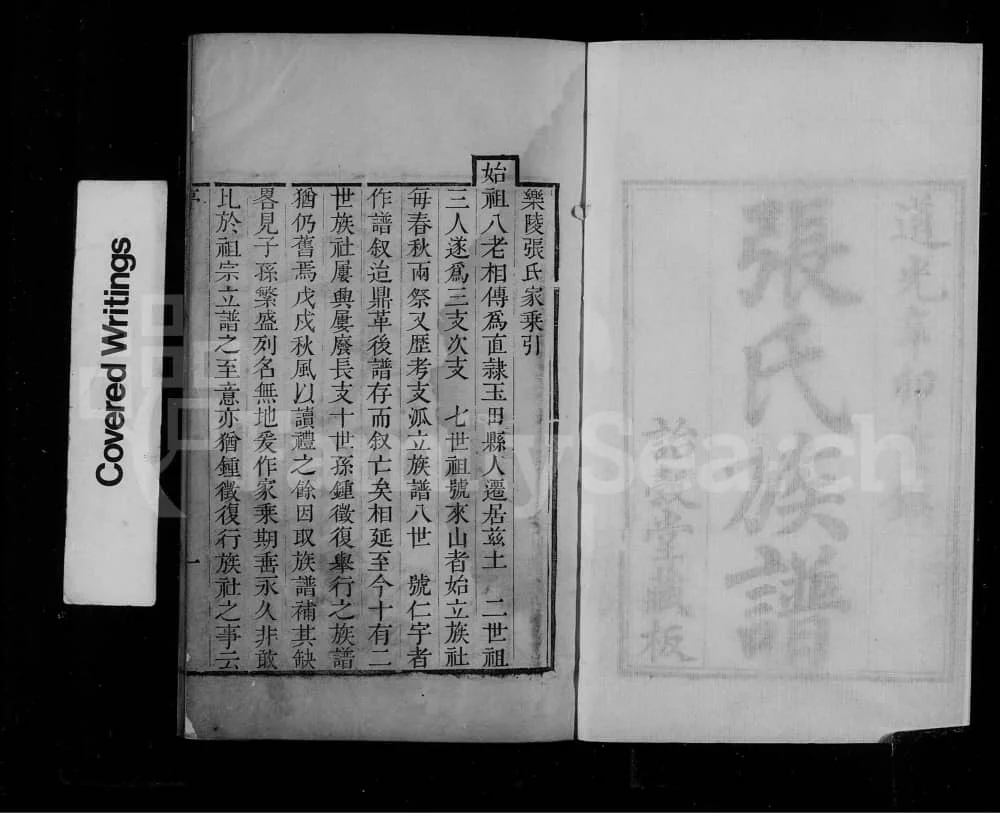 道光
張氏族譜
堂藏板
樂陵張氏家乗引
始祖八老相傳爲直隷玉田縣人遷居兹土 二世祖
三人遂爲三支次支 七世祖號來山者始立族社
每春秋兩祭又歴考支派立族譜八世 號仁宇者
作譜叙迨鼎革後譜存而叙亡矣相延至今十有二
世族社屢興屢廢長支十世孫鍾徵復舉行之族譜
猶仍舊焉戊戌秋風以讀禮之餘因取族譜補其缺
畧見子孫繁盛列名無地爰作家乗期垂永久非敢
比於祖宗立譜之至意亦猶鍾徵復行族社之事云
一
Covered Writings
FamilySearch